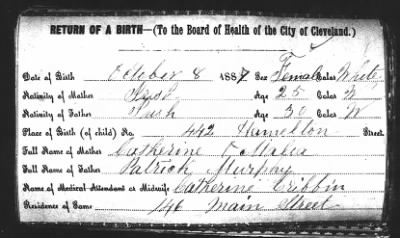 RETURN OF A BIRTH—(To the Board of Health of the City of Cleveland.)
Date of Birth October 8 1887 Sex Female Color White
Nativity of Mother Irish Age 25 Color W
Nativity of Father Irish Age 30 Color W
Place of Birth (of child) No. 442 Hamilton Street.
Full Name of Mother Catherine O Malia
Full Name of Father Patrick Murphy
Name of Medical Attendant or Midwife Catherine Cribbin
Residence of Same 146 Main Street